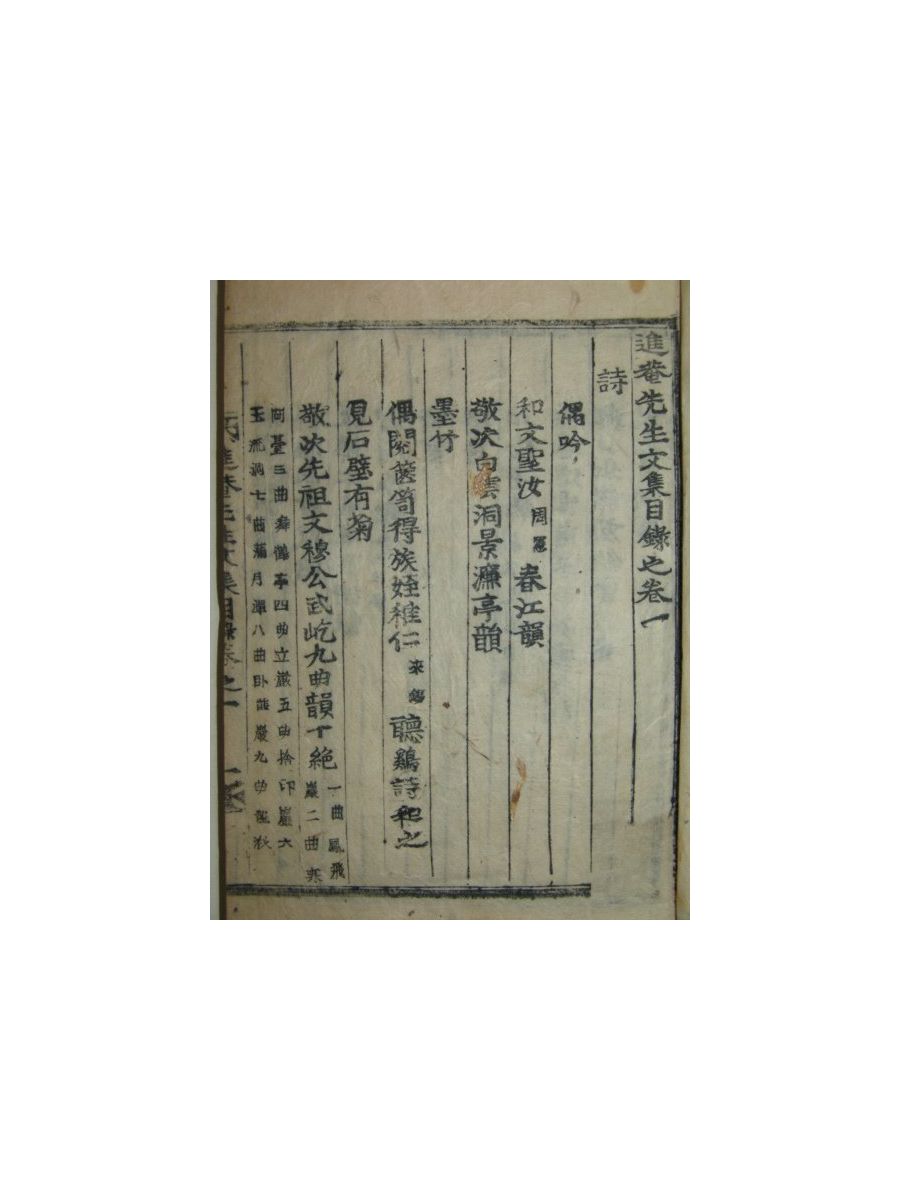 進菴先生文集目錄之卷一
詩
偶吟
和文聖汝 周 春江韻
敬次白雲洞景濂亭韻
墨竹
偶閱篋笥得族姪稚仁 來 聽鷄詩和之
見石壁有菊
敬次先祖文穆公武屹九曲韻十絶 一曲鳳飛巖二曲寒
岡臺三曲舞鶴亭四曲立巖五曲捨印巖六
玉流洞七曲滿月潭八曲臥龍巖九曲龍湫
進菴先生文集目錄卷之一